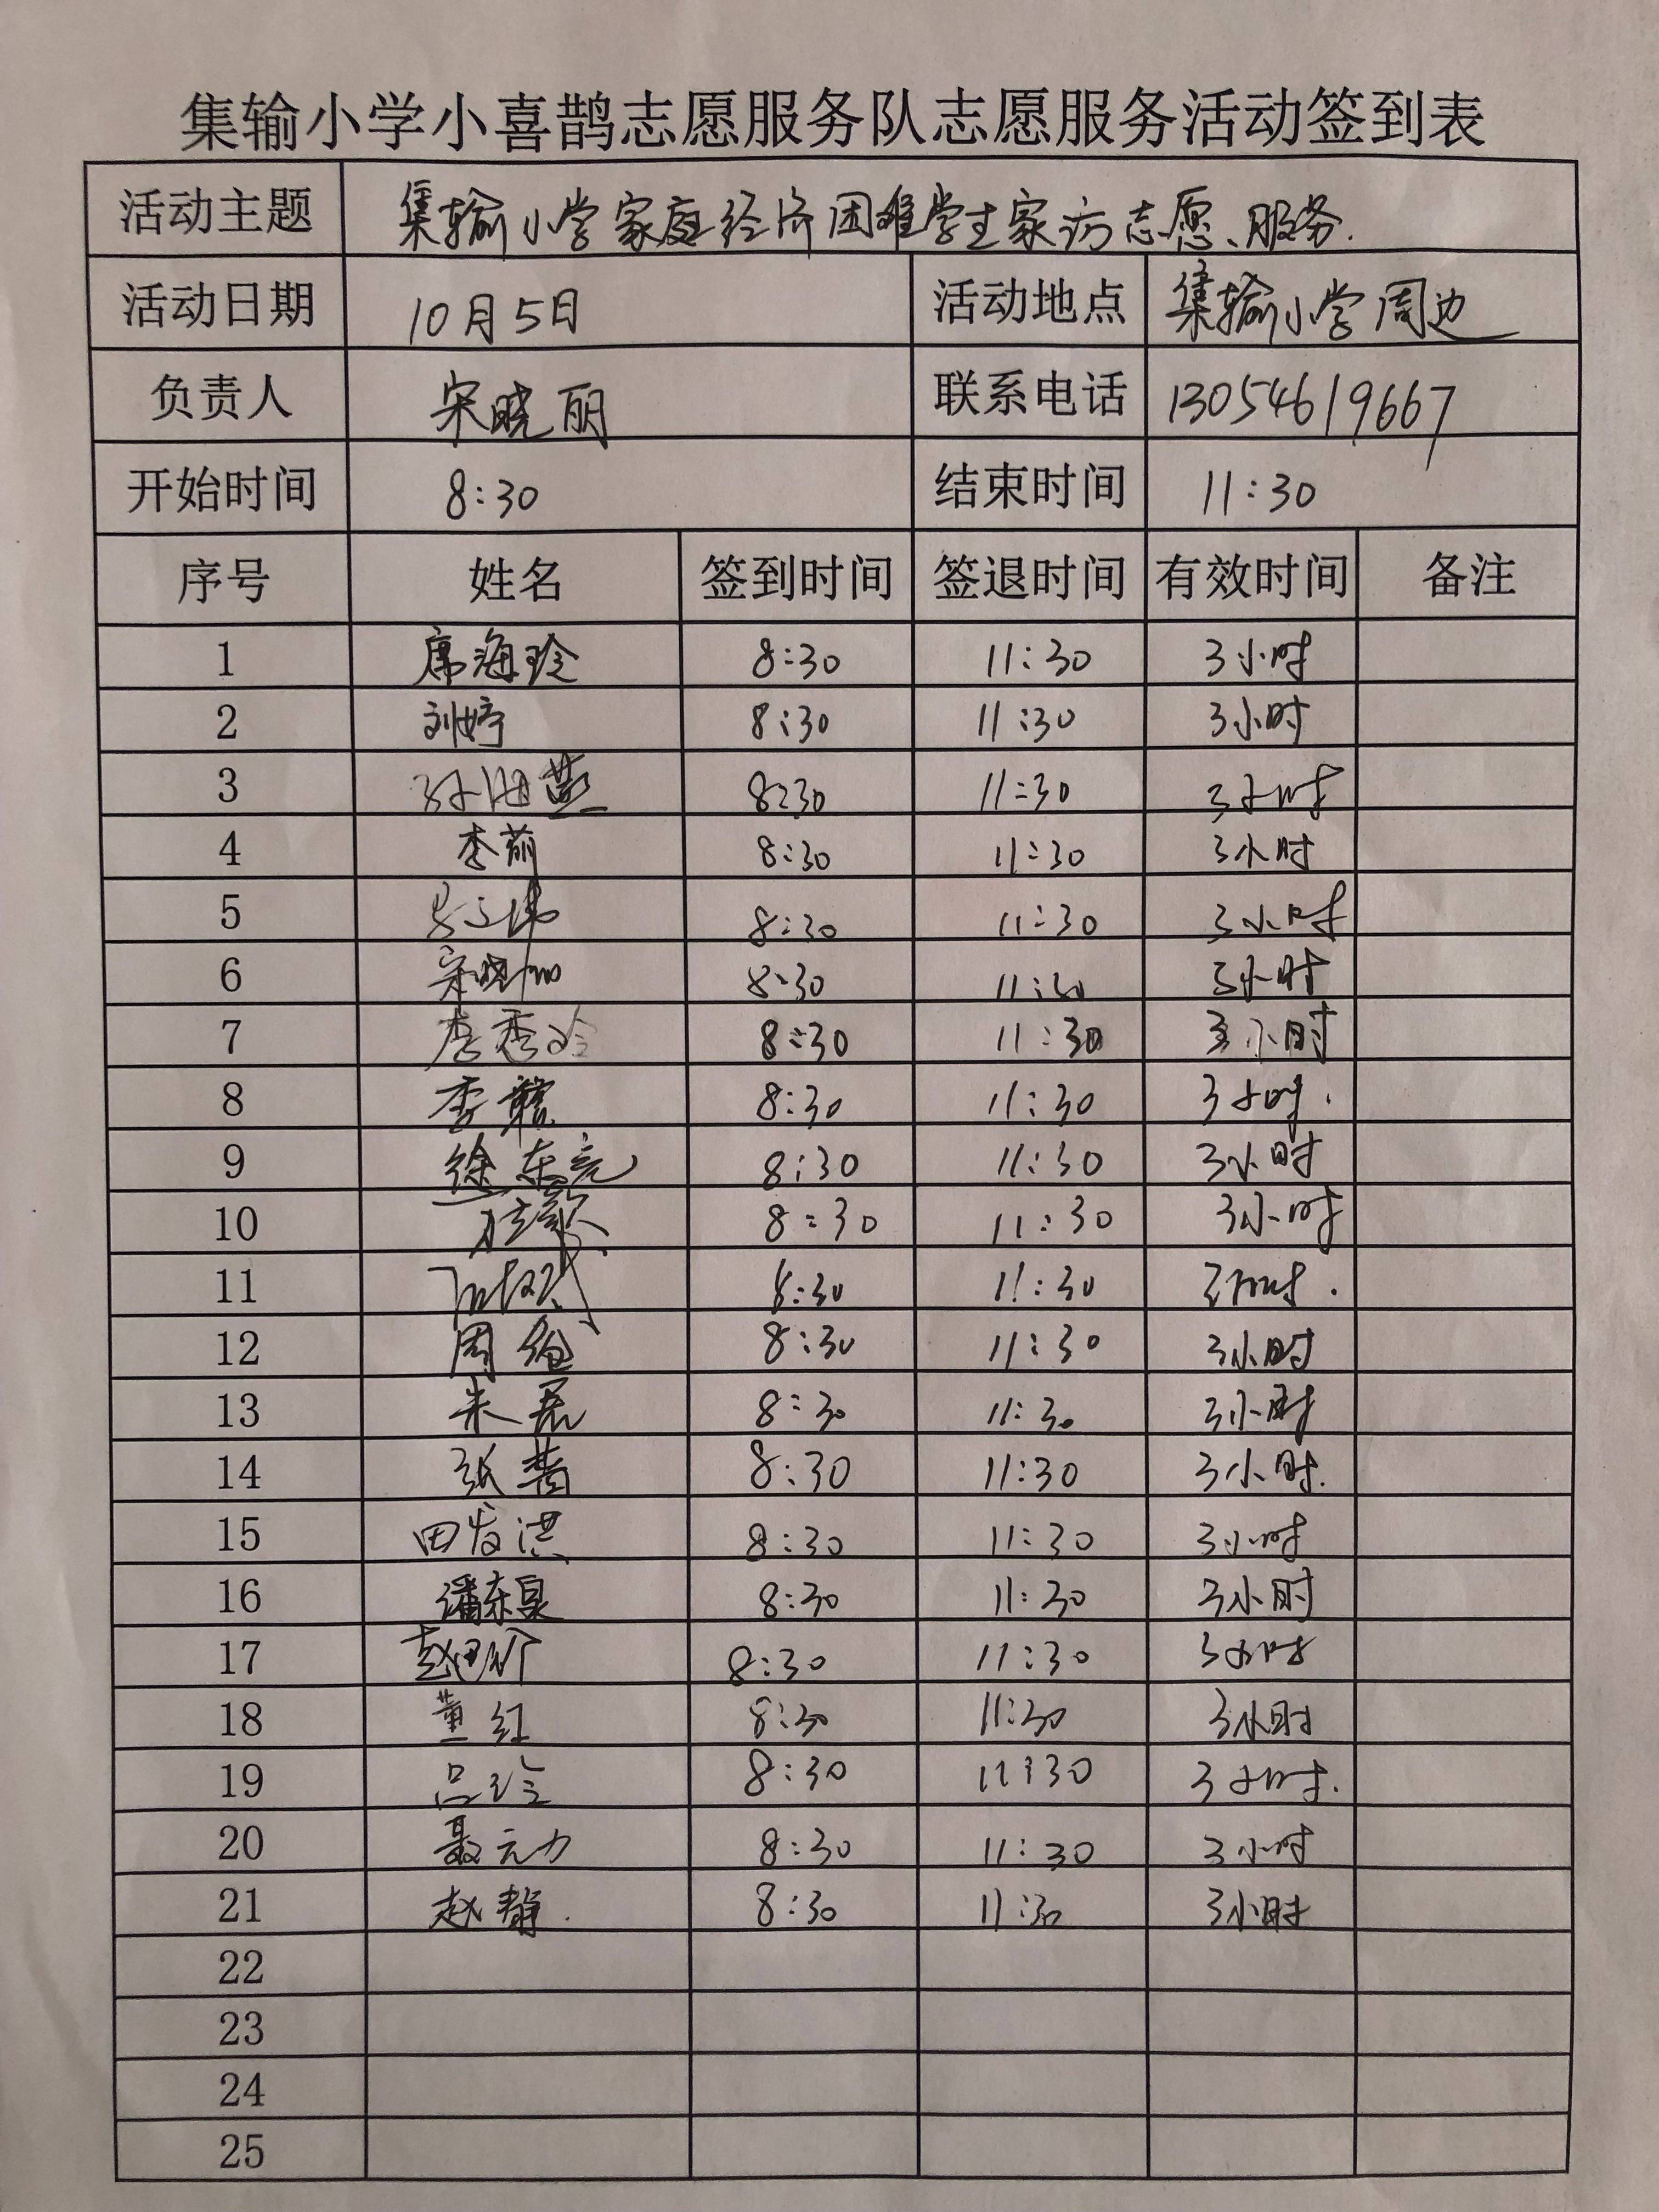 集输小学小喜鹊志愿服务队志愿服务活动签到表
活动主题 集输小学家庭经济困难学生家访志愿服务.
活动日期 10月5日 活动地点 集输小学周边
负责人 宋晓丽 联系电话 13054619667
开始时间 8:30 结束时间 11:30
序号 姓名 签到时间 签退时间 有效时间 备注
1 席海玲 8:30 11:30 3小时
2 刘婷 8:30 11:30 3小时
3 8:30 11:30 3小时
4 李莉 8:30 11:30 3小时
5 8:30 11:30 3小时
6 宋晓丽 8:30 11:30 3小时
7 李秀玲 8:30 11:30 3小时
8 李 8:30 11:30 3小时.
9 徐东亮 8:30 11:30 3小时
10 8:30 11:30 3小时
11 8:30 11:30 3小时.
12 周 8:30 11:30 3小时
13 朱磊 8:30 11:30 3小时
14 张 8:30 11:30 3小时.
15 田发洪 8:30 11:30 3小时
16 潘东泉 8:30 11:30 3小时
17 赵 8:30 11:30 3小时
18 董红 8:30 11:30 3小时
19 吕玲 8:30 11:30 3小时.
20 聂元力 8:30 11:30 3小时
21 赵静. 8:30 11:30 3小时
22
23
24
25